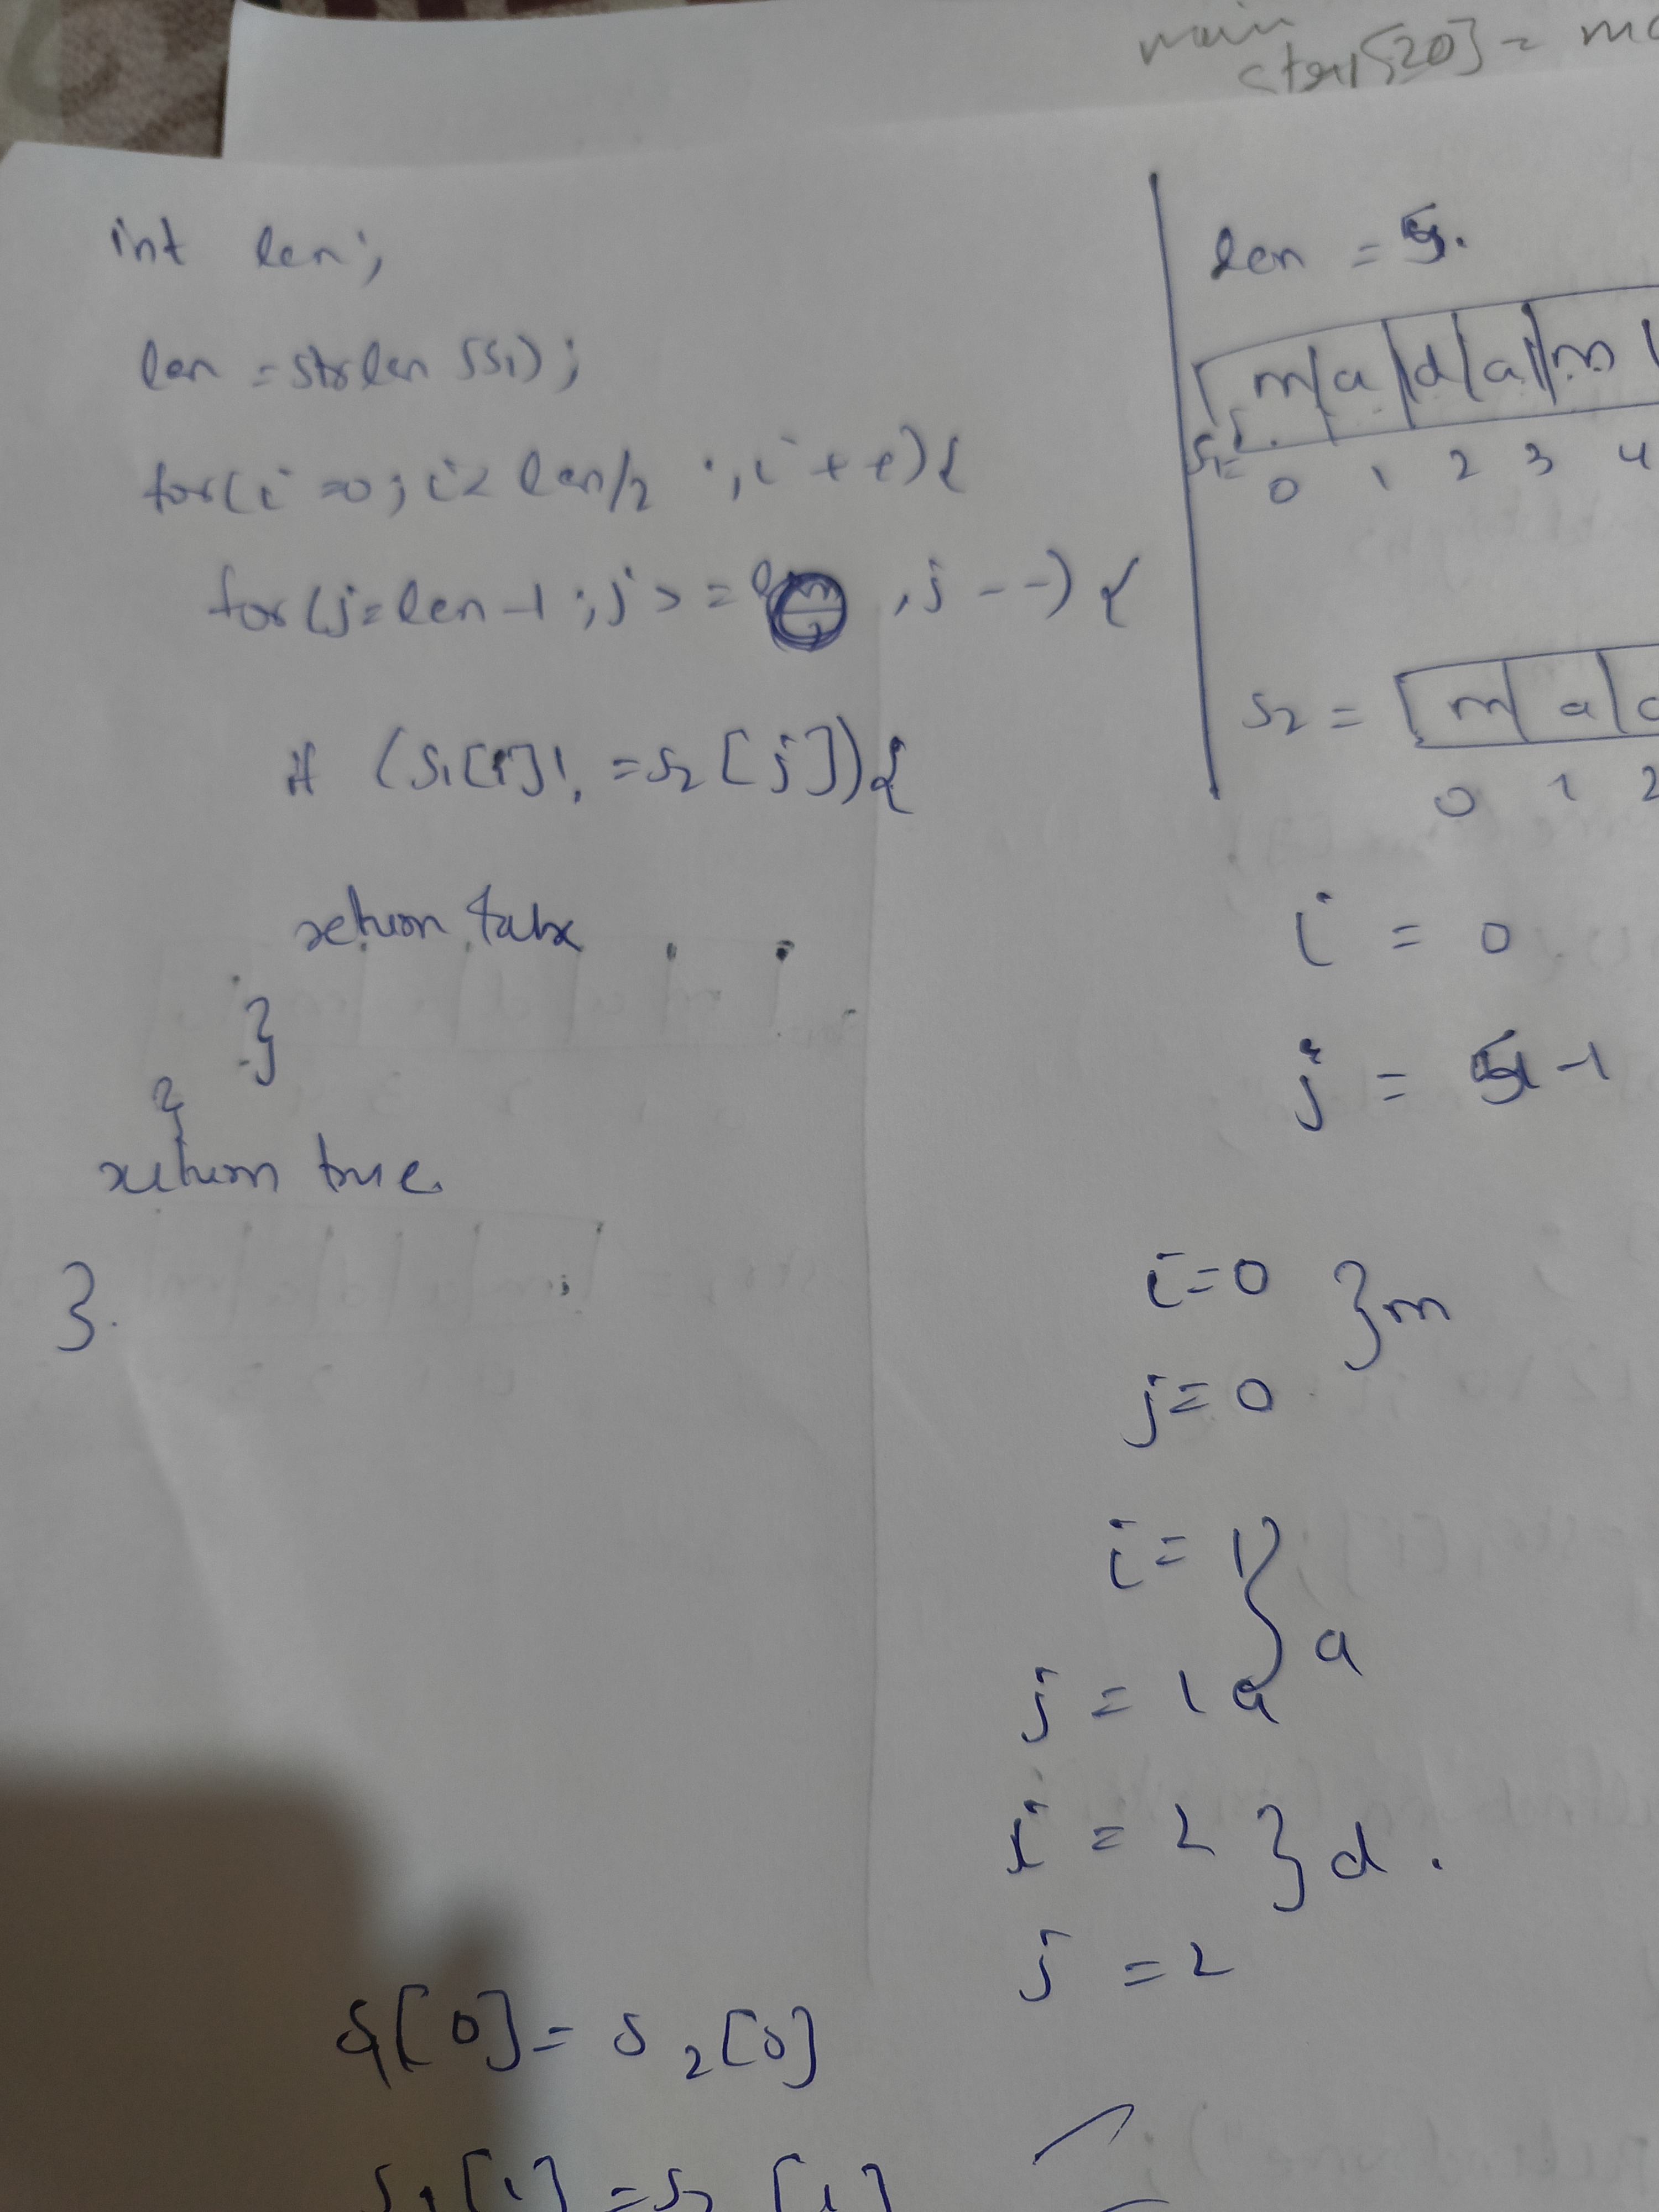 main
str1[20] =
int len;
len = strlen (s1);
for(i=0; i< len/2 ; i++){
for(j=len-1; j>= , j--) {
if (s1[i]! = s2[j]){
return false
}
}
return true
}.
len = 5.
m a d a m
s1=
0 1 2 3 4
s2 = m a
0 1 2
i = 0
j = 5-1
i=0 } m
j=0
i= 1 } a
j = 1 a
i = 2 } d .
j = 2
s1[0] = s2[0]
s1[1] = s2[1]